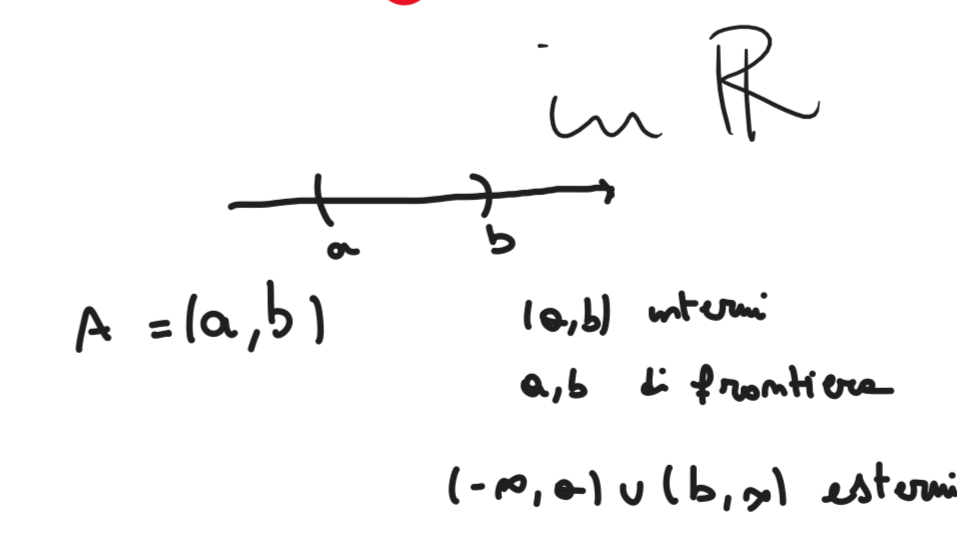 in ℝ
a b
A = (a,b)
(a,b) interni
a,b di frontiera
(-∞, a) ∪ (b, ∞) esterni